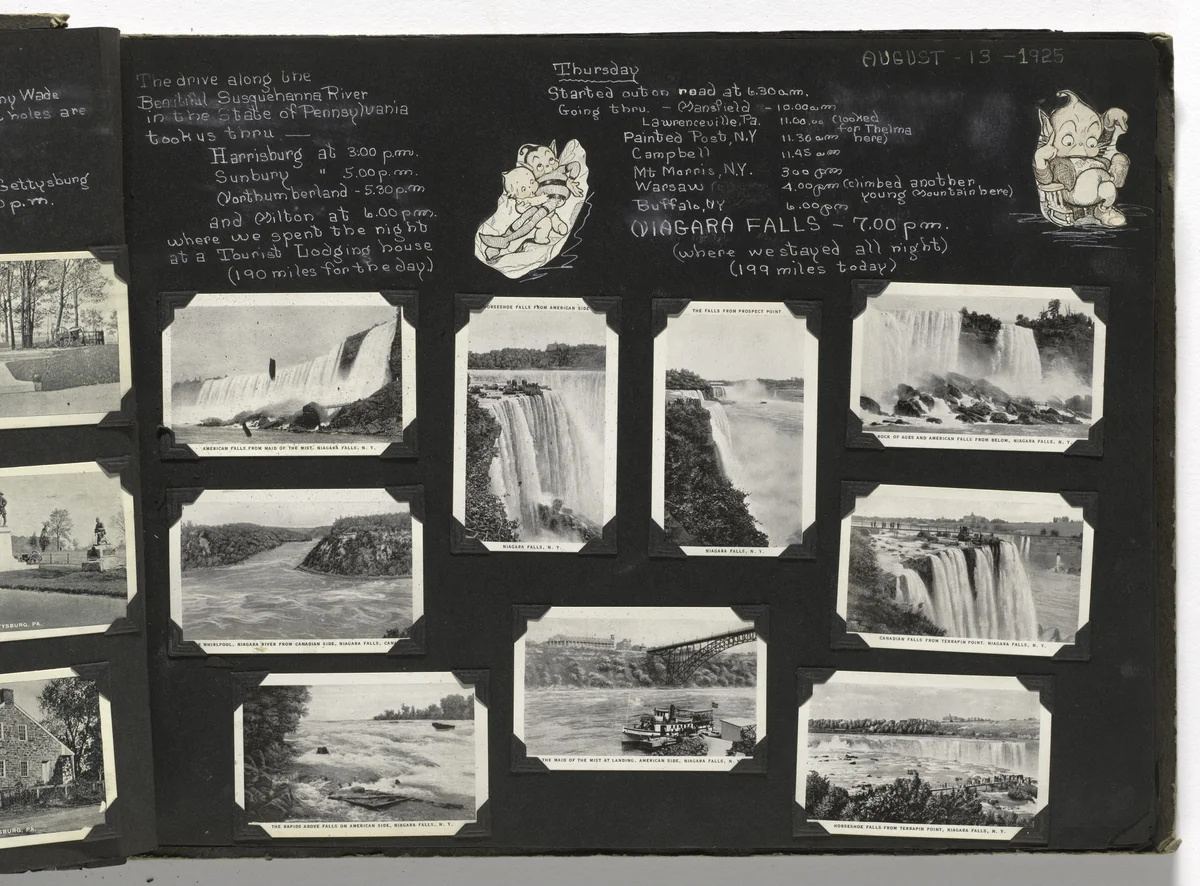 ny Wade
holes are
Gettysburg
p.m.
TYSBURG, PA.
SBURG, PA.
The drive along the
Beautiful Susquehanna River
in the State of Pennsylvania
took us thru —
Harrisburg at 3:00 p.m.
Sunbury " 5.00 p.m.
Northumberland - 5.30 p.m
and Milton at 6.00 p.m.
where we spent the night
at a Tourist Lodging house
(190 miles for the day.)
AUGUST - 13 - 1925
Thursday
Started out on road at 6.30 a.m.
Going thru. - Mansfield - 10.00 am
Lawrenceville, Pa. 11.00 (looked for Thelma here)
Painted Post, N.Y 11.30 am
Campbell 11.45 am
Mt Morris, N.Y. 3 00 pm
Warsaw 4.00 pm (climbed another young Mountain here)
Buffalo, NY 6.00 pm
NIAGARA FALLS - 7.00 p m.
(where we stayed all night)
(199 miles today)
AMERICAN FALLS FROM MAID OF THE MIST, NIAGARA FALLS, N. Y.
HORSESHOE FALLS FROM AMERICAN SIDE
NIAGARA FALLS, N. Y.
THE FALLS FROM PROSPECT POINT
NIAGARA FALLS, N. Y.
ROCK OF AGES AND AMERICAN FALLS FROM BELOW, NIAGARA FALLS, N. Y.
WHIRLPOOL, NIAGARA RIVER FROM CANADIAN SIDE, NIAGARA FALLS, CAN
CANADIAN FALLS FROM TERRAPIN POINT, NIAGARA FALLS, N. Y.
THE MAID OF THE MIST AT LANDING, AMERICAN SIDE, NIAGARA FALLS, N. Y.
THE RAPIDS ABOVE FALLS ON AMERICAN SIDE, NIAGARA FALLS, N. Y.
HORSESHOE FALLS FROM TERRAPIN POINT, NIAGARA FALLS, N. Y.